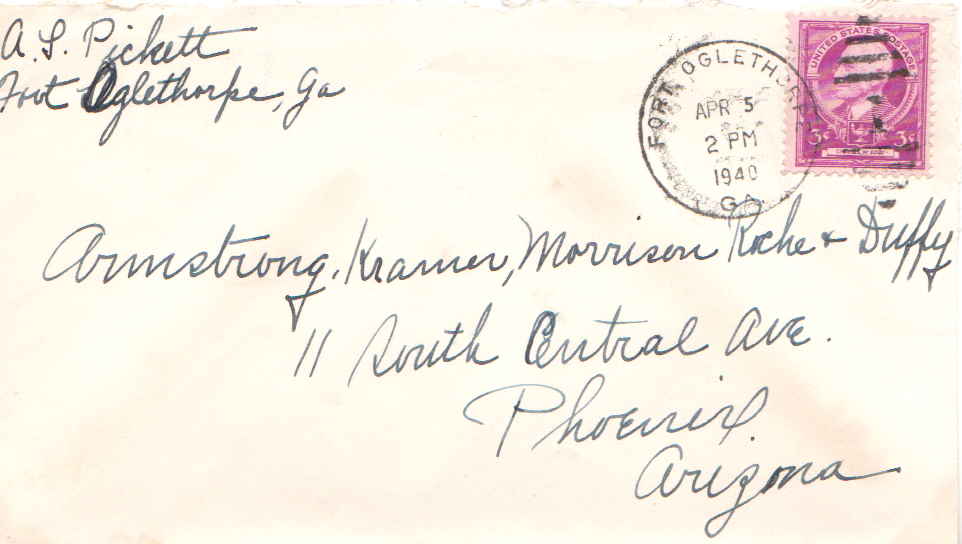 A. S. Pickett
Fort Oglethorpe, Ga
FORT OGLETHORPE
APR 5
2 PM
1940
GA
UNITED STATES POSTAGE
3¢ 3¢
Armstrong, Kramer, Morrison Roche + Duffy
11 South Central Ave.
Phoenix
Arizona